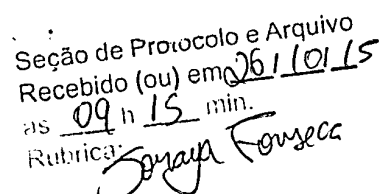 Seção de Protocolo e Arquivo
Recebido (ou) em 26/10/15
as 09 h 15 min.
Rubrica: Soraya Fonseca